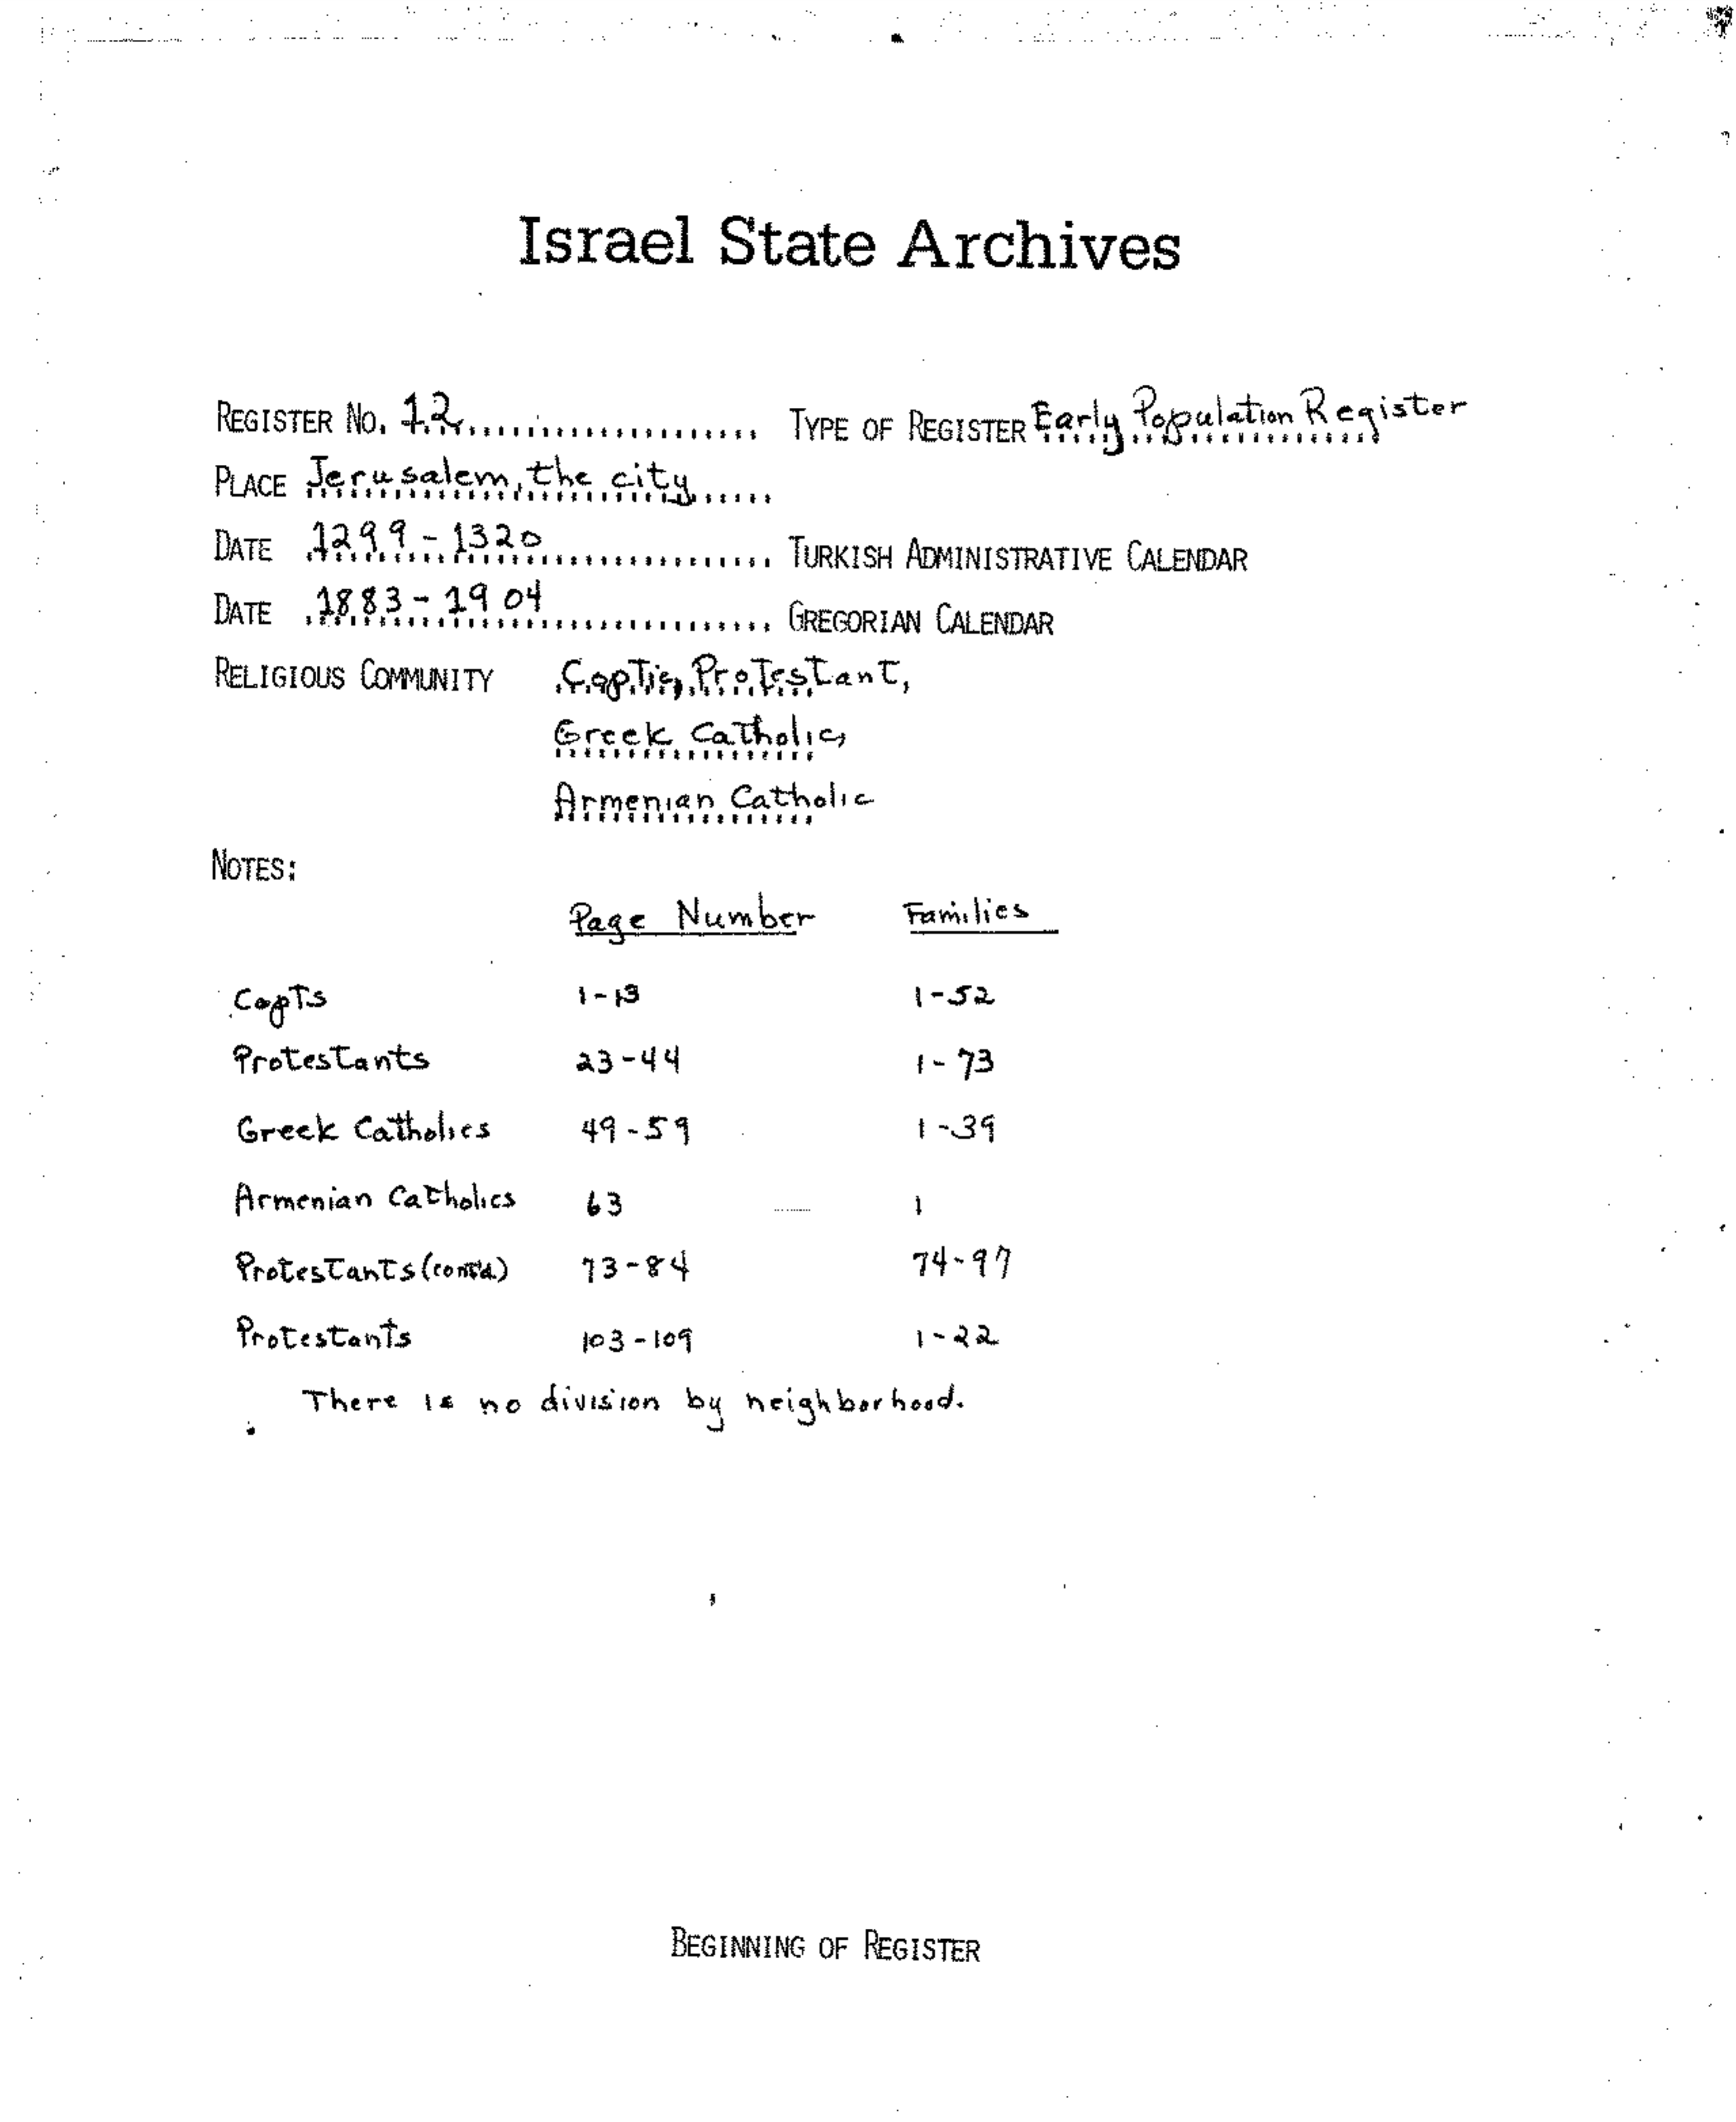 Israel State Archives
REGISTER NO. 12 TYPE OF REGISTER Early Population Register
PLACE Jerusalem, the city
DATE 1299-1320 TURKISH ADMINISTRATIVE CALENDAR
DATE 1883-1904 GREGORIAN CALENDAR
RELIGIOUS COMMUNITY Coptic, Protestant,
Greek Catholic,
Armenian Catholic
NOTES:
Page Number Families
Copts 1-13 1-52
Protestants 23-44 1-73
Greek Catholics 49-59 1-39
Armenian Catholics 63 1
Protestants (cont'd.) 73-84 74-97
Protestants 103-109 1-22
There is no division by neighborhood.
BEGINNING OF REGISTER